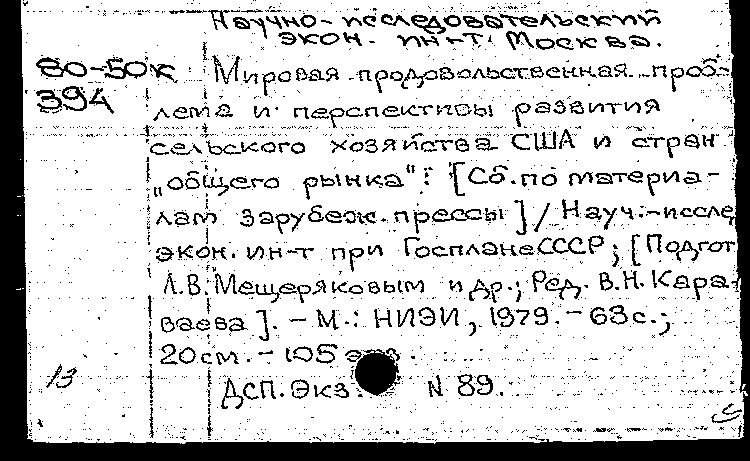 Научно-исследовательский
экон. ин-т. Москва.
80-50к Мировая продовольственная проб-
394 лема и перспективы развития
сельского хозяйства США и стран
„общего рынка": [Сб. по материа-
лам зарубеж. прессы] / Науч.-иссле
экон. ин-т при Госплане СССР; [Подгот
Л.В. Мещеряковым и др.; Ред. В.Н. Кара-
ваева]. - М.: НИЭИ, 1979. - 63 с.;
20 см. - 105 экз.
13 ДСП. Экз. N 89.